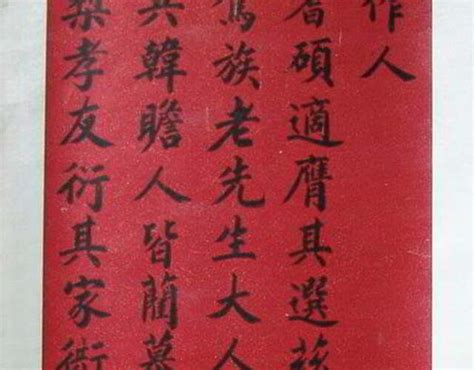 作人
碩適膺其選茲
族老先生大人
韓瞻人皆藺慕
孝友衍其家